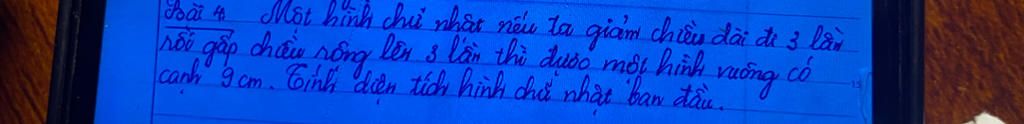 Bài 4 Một hình chữ nhật nếu ta giảm chiều dài đi 3 lần
rồi gấp chiều rộng lên 3 lần thì được một hình vuông có
cạnh 9 cm. Tính diện tích hình chữ nhật ban đầu.